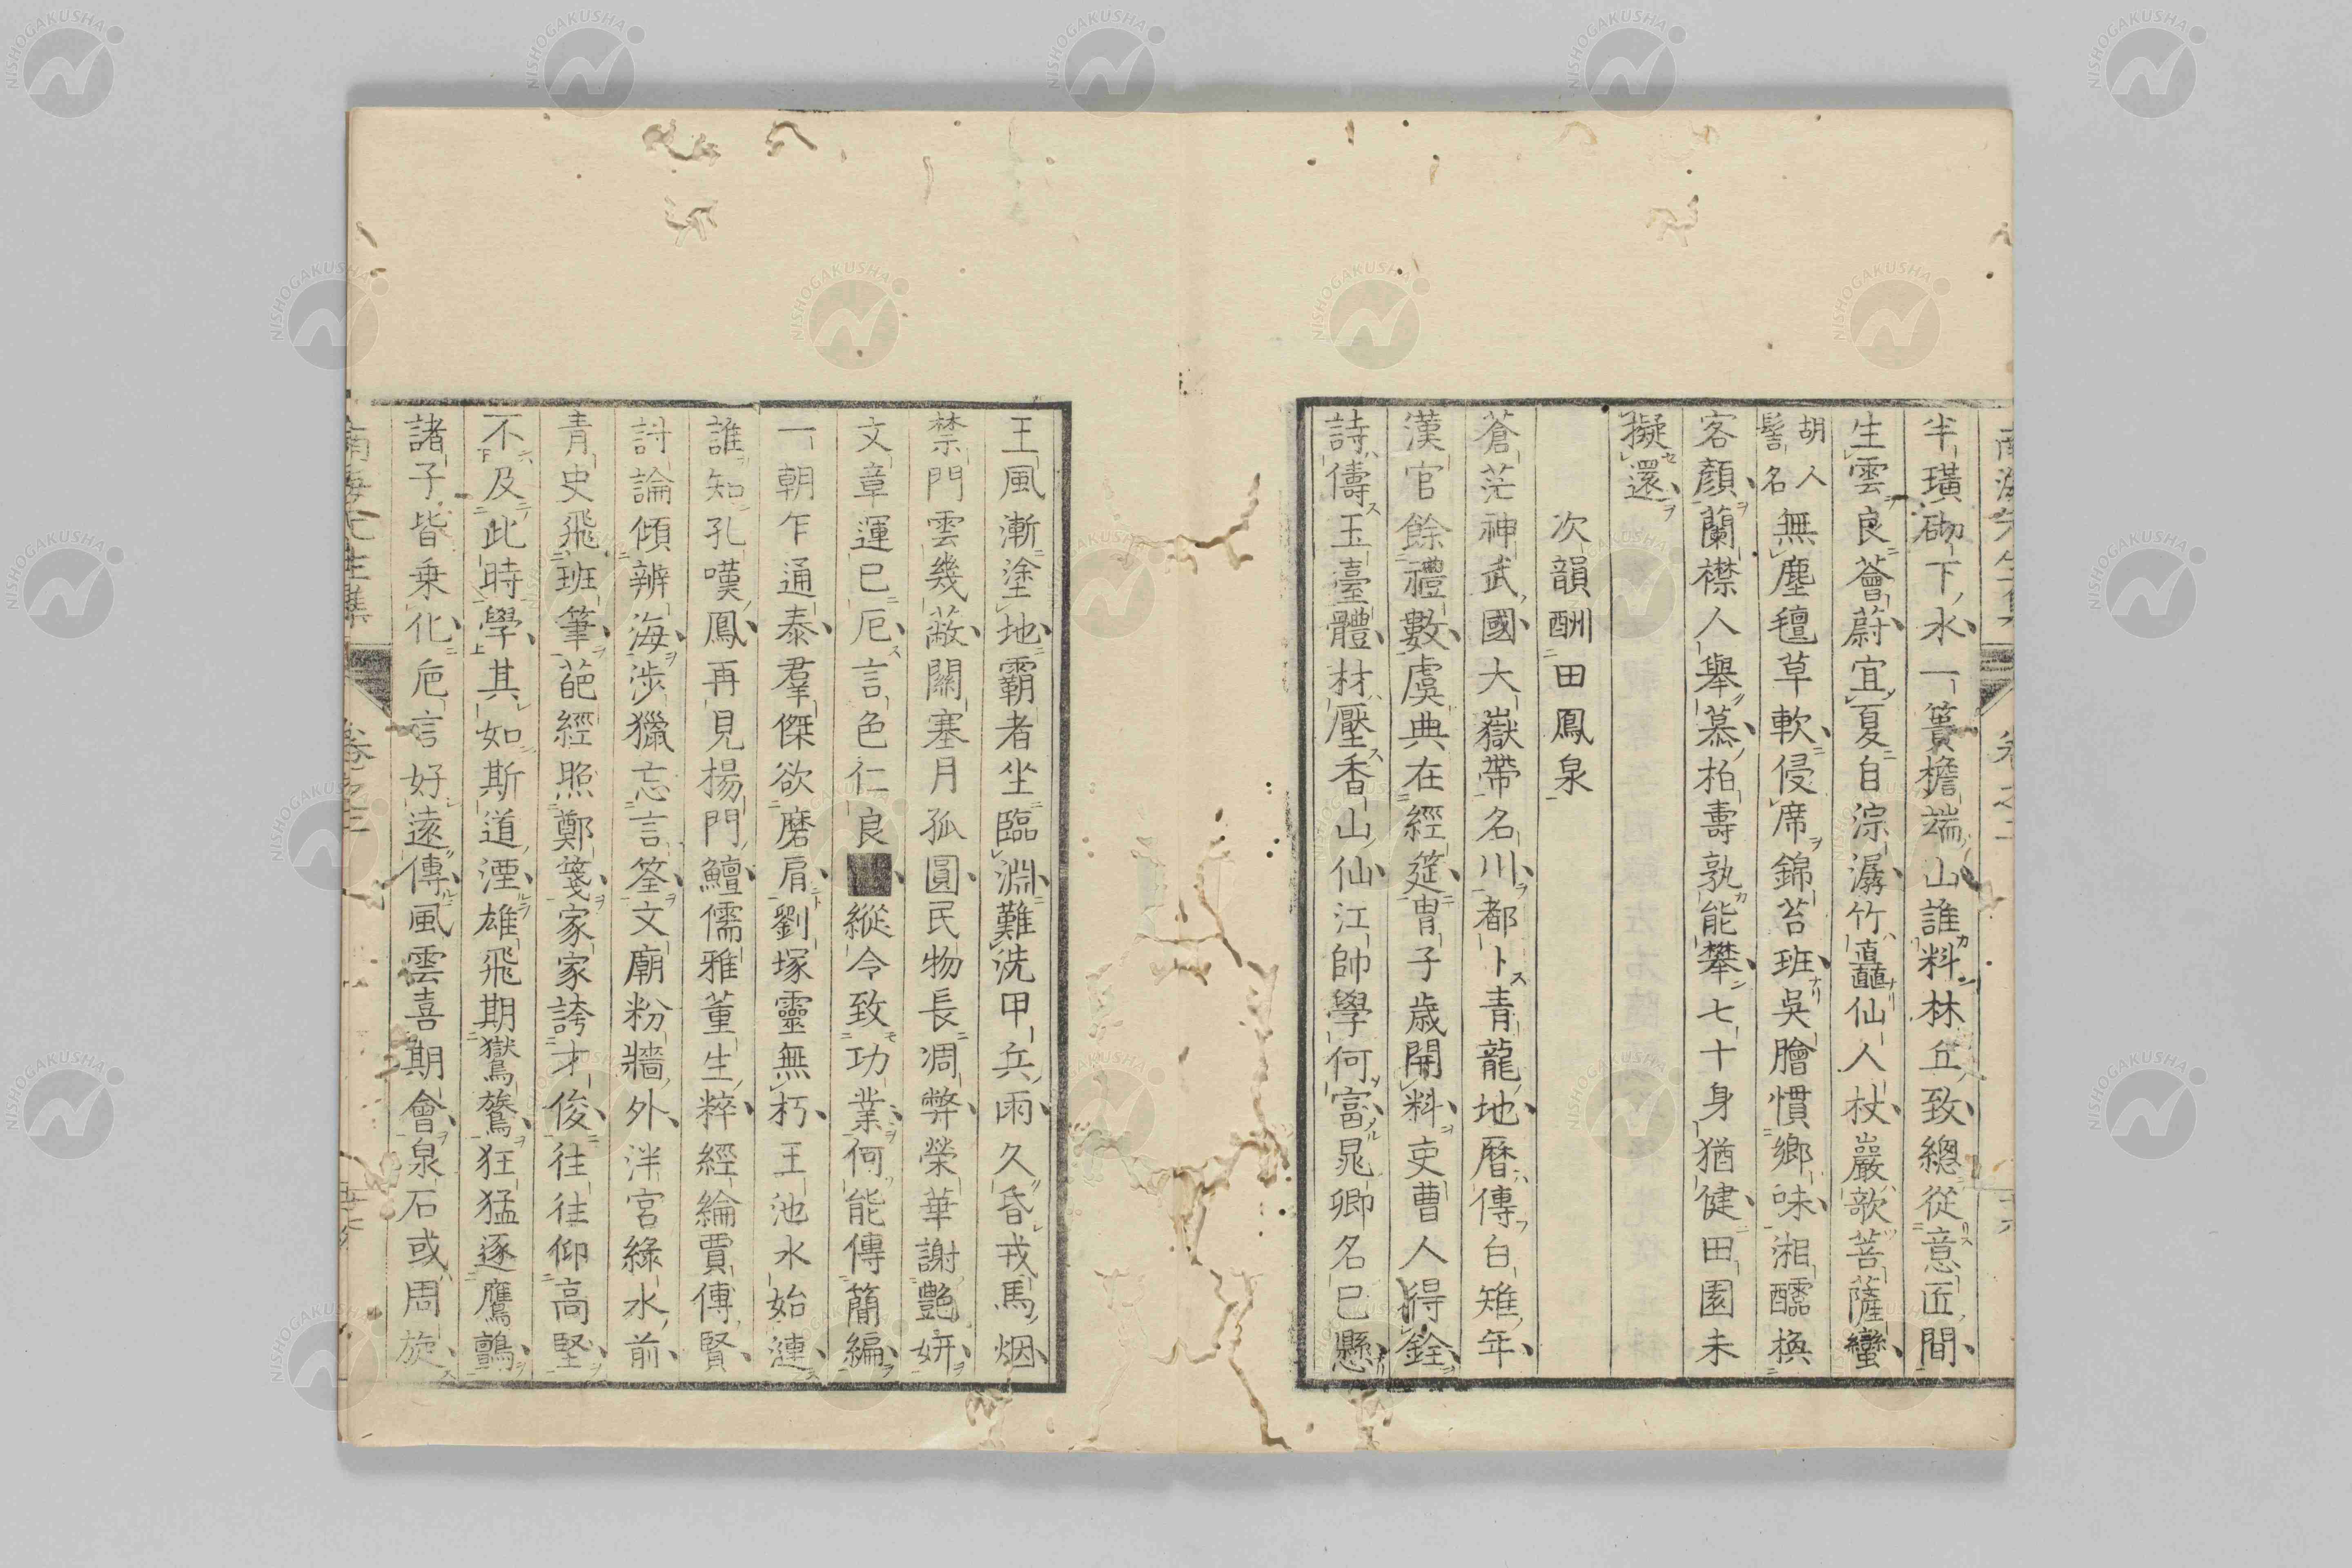 半璜砌下水一簣檐端山誰料林丘致總從意匠間
生雲良薈蔚宜夏自淙潺竹直龘仙人杖巖歌菩薩蠻
胡人
髻名
無塵氊草軟侵席錦苔班吳膾慣鄉味湘醽換
客顏蘭襟人舉慕柏壽孰能攀七十身猶健田園未
擬還
次韻酬田鳳泉
蒼茫神武國大嶽帶名川都卜青龍地曆傳白雉年
漢官餘禮數虞典在經筵胄子歲開料吏曹人得銓
詩儔玉臺體材壓香山仙江帥學何富晁卿名已懸
王風漸塗地霸者坐臨淵難洗甲兵雨久昏戎馬烟
禁門雲幾蔽關塞月孤圓民物長凋弊榮華謝艷妍
文章運已厄言色仁良縱令致功業何能傳簡編
一朝乍通泰羣傑欲磨肩劉塚靈無朽王池水始漣
誰知孔嘆鳳再見揚門鱣儒雅董生粹經綸賈傳賢
討論傾辨海涉獵忘言筌文廟粉牆外泮宮綠水前
青史飛班筆葩經照鄭箋家家誇才俊往往仰高堅
不及此時學其如斯道湮雄飛期鸑鷟狂猛逐鷹鸇
諸子皆乗化巵言好遠傳風雲喜期會泉石或周旋
NISHOGAKUSHA